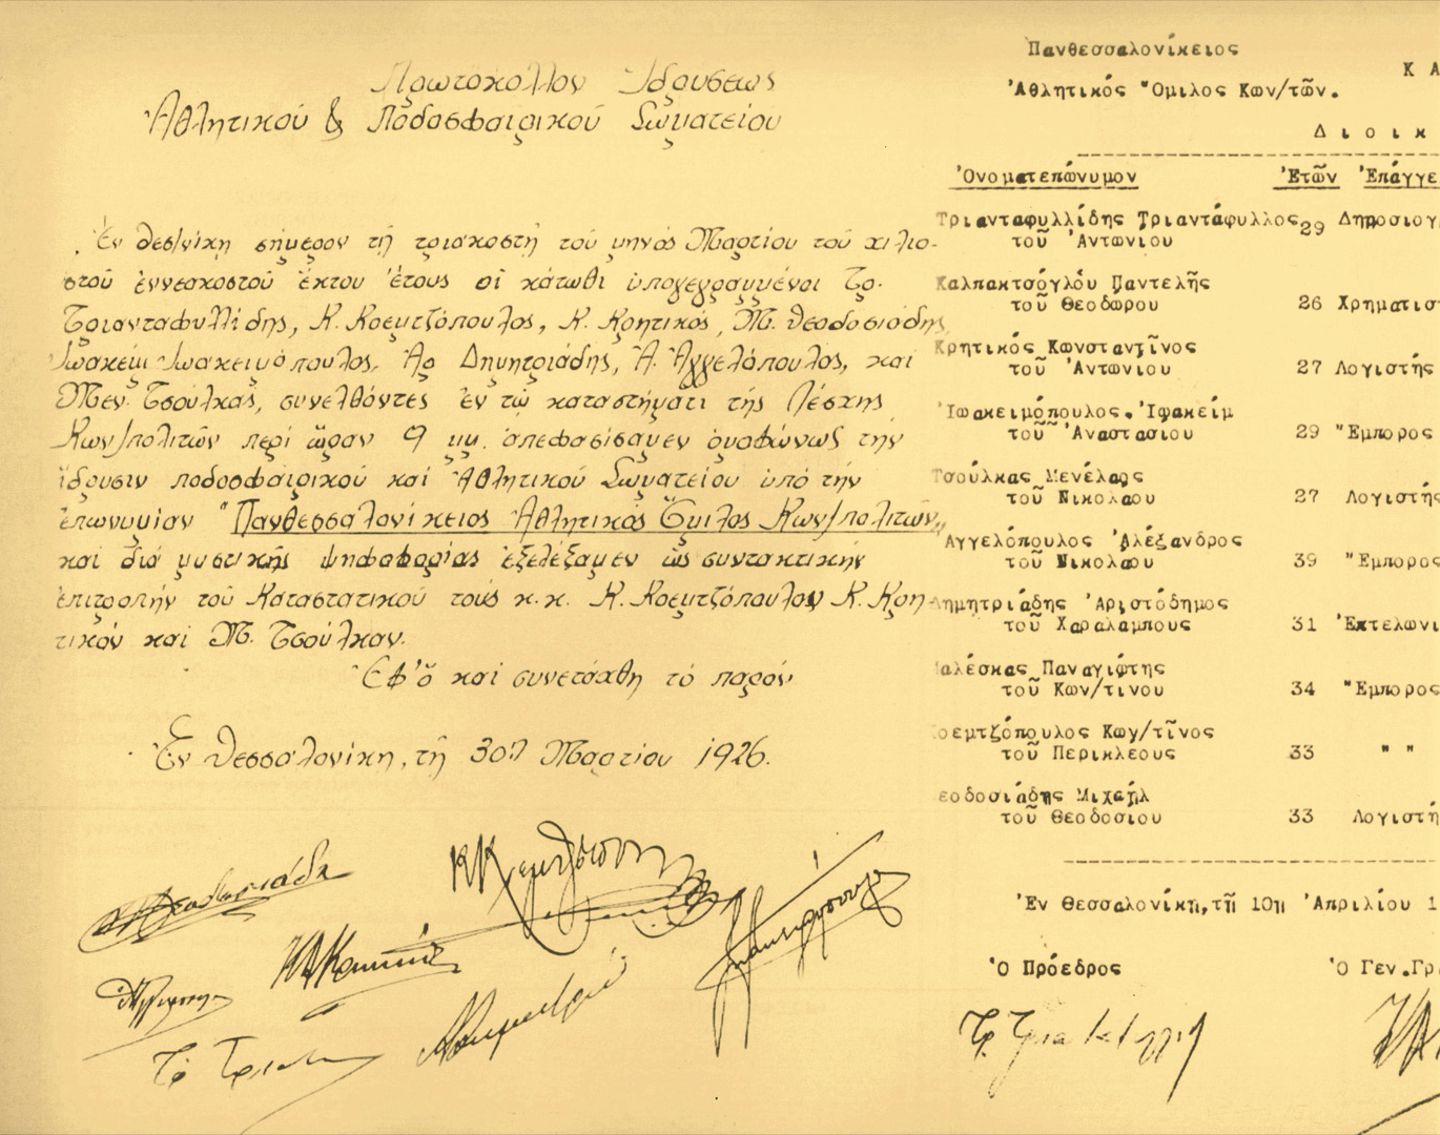 Πρωτόκολλον Ἱδρύσεως
Ἀθλητικοῦ & Ποδοσφαιρικοῦ Σωματείου
Ἐν Θεσ/νίκῃ σήμερον τῇ τριακοστῇ τοῦ μηνός Μαρτίου τοῦ χιλιο-
στοῦ ἐννεακοστοῦ ἕκτου ἔτους οἱ κάτωθι ὑπογεγραμμένοι Τρ.
Τριανταφυλλίδης, Κ. Κοεμτζόπουλος, Κ. Κρητικός, Μ. Θεοδοσιάδης,
Ἰωακείμ Ἰωακειμόπουλος, Ἀρ. Δημητριάδης, Ἀ. Ἀγγελόπουλος, καί
Μεν. Τσούλκας, συνελθόντες ἐν τῷ καταστήματι τῆς Λέσχης
Κων/πολιτῶν περί ὥραν 9 μμ. ἀπεφασίσαμεν ὁμοφώνως τήν
ἵδρυσιν ποδοσφαιρικοῦ καί Ἀθλητικοῦ Σωματείου ὑπό τήν
ἐπωνυμίαν "Πανθεσσαλονίκειος Ἀθλητικός Ὅμιλος Κων/πολιτῶν"
καί διά μυστικῆς ψηφοφορίας ἐξελέξαμεν ὡς συντακτικήν
ἐπιτροπήν τοῦ Καταστατικοῦ τούς κ.κ. Κ. Κοεμτζόπουλον Κ. Κρη-
τικόν καί Μ. Τσούλκαν.
Ἐφ' ὅ καί συνετάχθη τό παρόν
Ἐν Θεσσαλονίκῃ, τῇ 30ῃ Μαρτίου 1926.
Πανθεσσαλονίκειος
Ἀθλητικός Ὅμιλος Κων/τῶν.
Κ Α
Δ ι ο ι κ
Ὀνοματεπώνυμον Ἐτῶν Ἐπάγγε
Τριανταφυλλίδης Τριαντάφυλλος 29 Δημοσιογ
τοῦ Ἀντωνίου
Καλπακτσόγλου Παντελῆς
τοῦ Θεοδώρου 26 Χρηματισ
Κρητικός Κωνσταντῖνος
τοῦ Ἀντωνίου 27 Λογιστής
Ἰωακειμόπουλος Ἰωακείμ
τοῦ Ἀναστασίου 29 Ἔμπορος
Τσούλκας Μενέλαος
τοῦ Νικολάου 27 Λογιστής
Ἀγγελόπουλος Ἀλέξανδρος
τοῦ Νικολάου 39 Ἔμπορος
Δημητριάδης Ἀριστόδημος
τοῦ Χαραλάμπους 31 Ἐκτελωνι
αλέσκας Παναγιώτης
τοῦ Κων/τίνου 34 Ἔμπορος
οεμτζόπουλος Κων/τῖνος
τοῦ Περικλέους 33 " "
εοδοσιάδης Μιχαήλ
τοῦ Θεοδοσίου 33 Λογιστή
Ἐν Θεσσαλονίκῃ, τῇ 10ῃ Ἀπριλίου 1
Ὁ Πρόεδρος Ὁ Γεν.Γρ